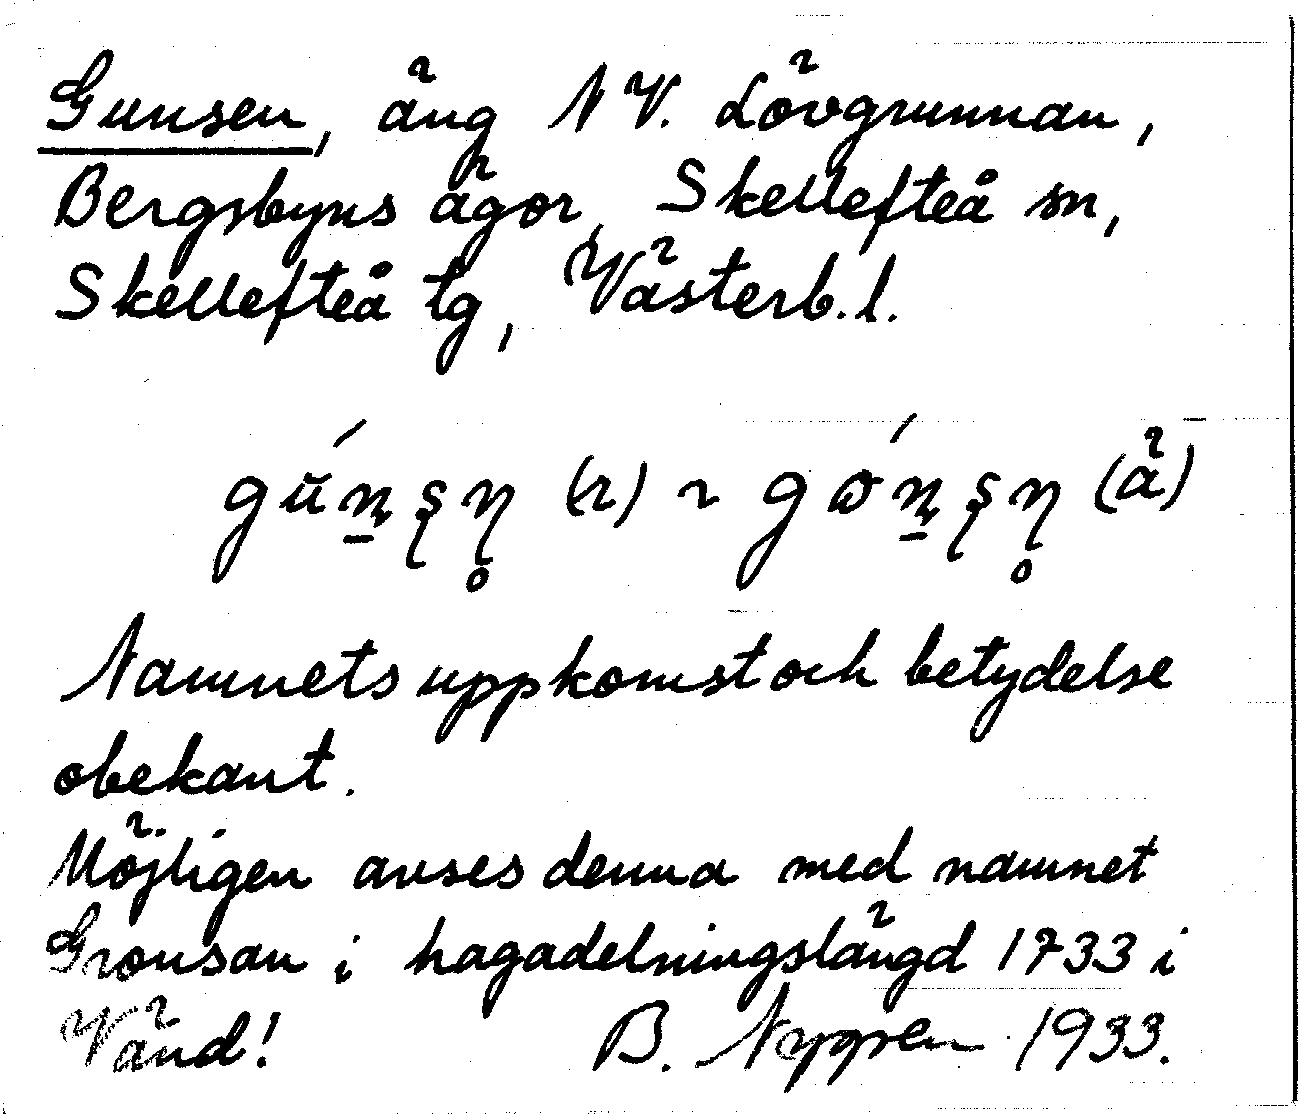 Gunsen, äng NV. Lövgrunnan,
Bergsbyns ägor, Skellefteå sn,
Skellefteå tg, Västerb.l.
(r) ~ (ä)
Namnets uppkomst och betydelse
obekant.
Möjligen avses denna med namnet
Gronsan i hagadelningslängd 1733 i
Vänd! B. Nygren 1933.